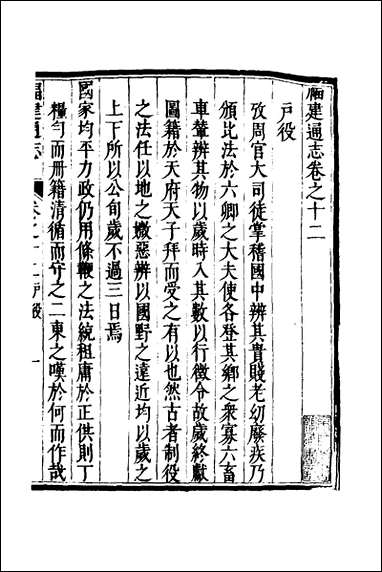 福建通志卷之十二
戸役
攷周官大司徒掌稽國中辨其貴賤老幼廢疾乃
頒比法於六卿之大夫使各登其鄉之衆寡六畜
車輦辨其物以歲時入其數以行徵令故歲終獻
圖籍於天府天子拜而受之有以也然古者制役
之法任以地之媺惡辨以國野之遠近均以歲之
上下所以公旬歲不過三日焉
國家均平力政仍用條鞭之法統租庸於正供則丁
糧勻而册籍清循而守之二東之嘆於何而作哉
福建通志
卷之十二 戸役
一